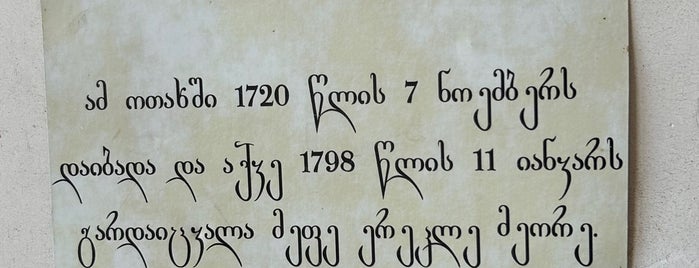 ამ ოთახში 1720 წლის 7 ნოემბერს
დაიბადა და აქვე 1798 წლის 11 იანვარს
გარდაიცვალა მეფე ერეკლე მეორე.